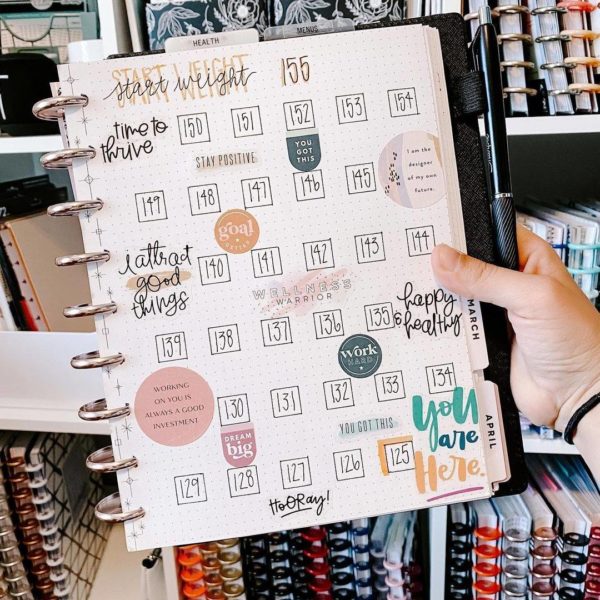 HEALTH
MENUS
START WEIGHT
start weight 155
time to
thrive
150 151 152 153 154
YOU
GOT
THIS
STAY POSITIVE
I am the
designer
of my own
future.
149 148 147 146 145
goal
GETTER
i attract
good
things
140 141 142 143 144
WELLNESS
WARRIOR
happy
& healthy
139 138 137 136 135
WORK
HARD
WORKING
ON YOU IS
ALWAYS A GOOD
INVESTMENT
130 131 132 133 134
DREAM
big
YOU GOT THIS
YOU
ARE
HERE.
129 128 127 126 125
HOORAY!
MARCH
APRIL